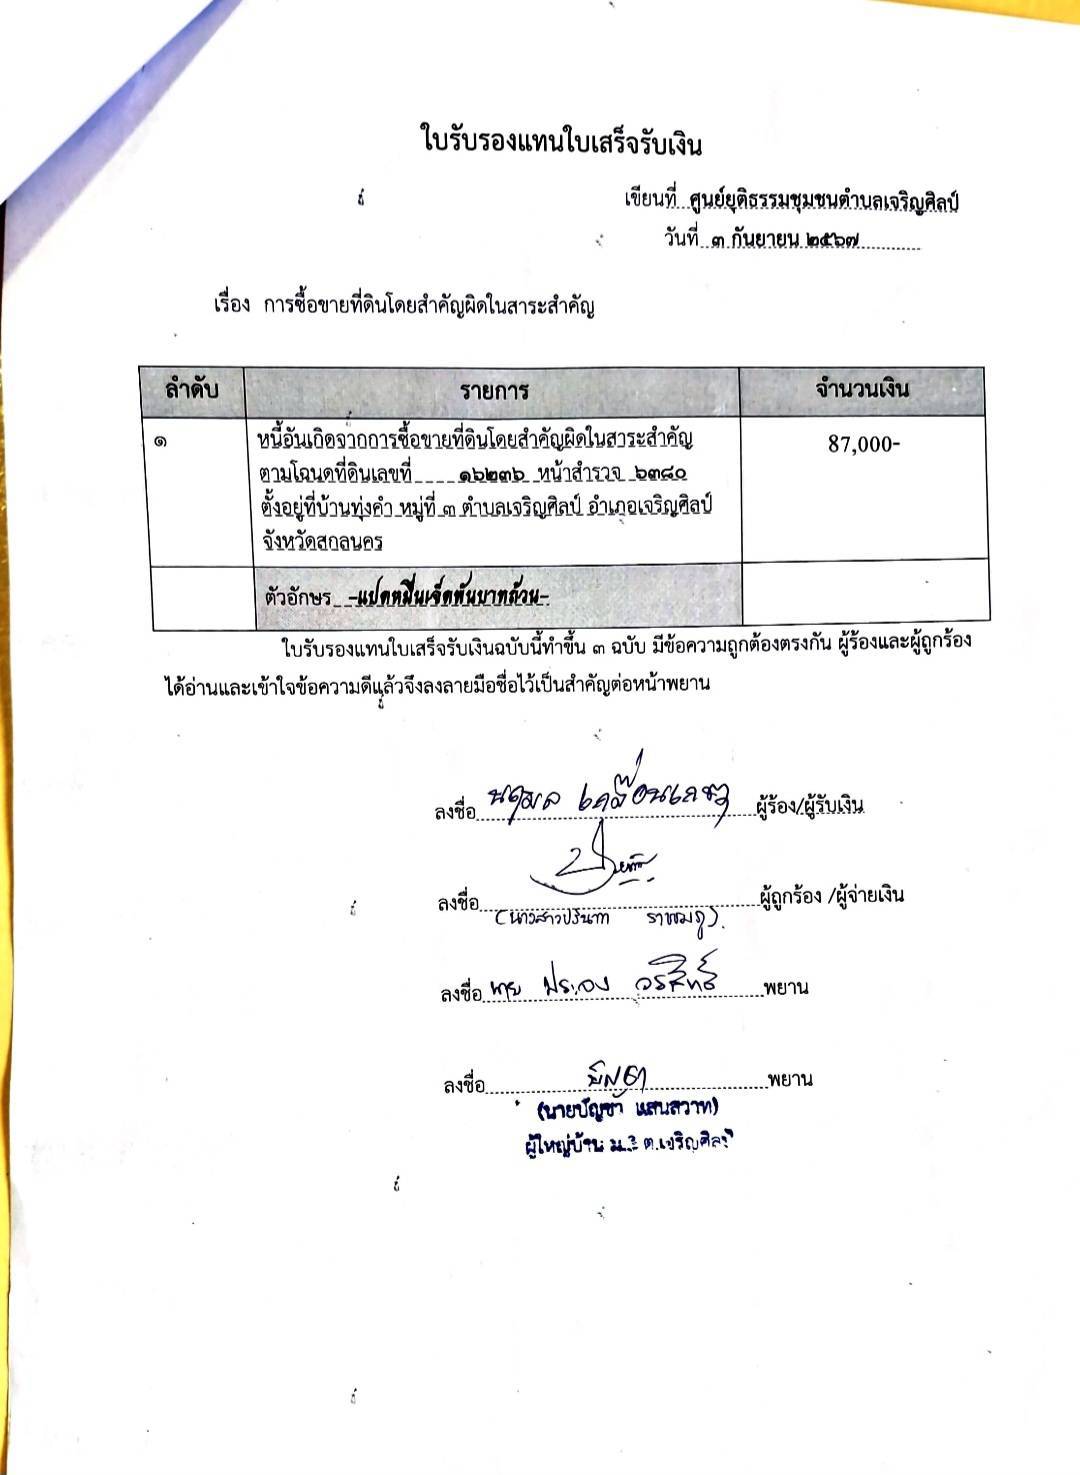 ใบรับรองแทนใบเสร็จรับเงิน
เขียนที่ ศูนย์ยุติธรรมชุมชนตำบลเจริญศิลป์
วันที่ ๓ กันยายน ๒๕๖๗
เรื่อง การซื้อขายที่ดินโดยสำคัญผิดในสาระสำคัญ
ลำดับ รายการ จำนวนเงิน
๑ หนี้อันเกิดจากการซื้อขายที่ดินโดยสำคัญผิดในสาระสำคัญ 87,000-
ตามโฉนดที่ดินเลขที่ ๑๖๒๓๖ หน้าสำรวจ ๖๓๘๐
ตั้งอยู่ที่บ้านทุ่งคำ หมู่ที่ ๓ ตำบลเจริญศิลป์ อำเภอเจริญศิลป์
จังหวัดสกลนคร
ตัวอักษร -แปดหมื่นเจ็ดพันบาทถ้วน-
ใบรับรองแทนใบเสร็จรับเงินฉบับนี้ทำขึ้น ๓ ฉบับ มีข้อความถูกต้องตรงกัน ผู้ร้องและผู้ถูกร้อง
ได้อ่านและเข้าใจข้อความดีแล้วจึงลงลายมือชื่อไว้เป็นสำคัญต่อหน้าพยาน
ลงชื่อ นฤมล ผู้ร้อง/ผู้รับเงิน
ลงชื่อ ผู้ถูกร้อง /ผู้จ่ายเงิน
ลงชื่อ นาย พยาน
ลงชื่อ พยาน
(นายบัญชา แสนสวาท)
ผู้ใหญ่บ้าน ม.3 ต.เจริญศิลป์